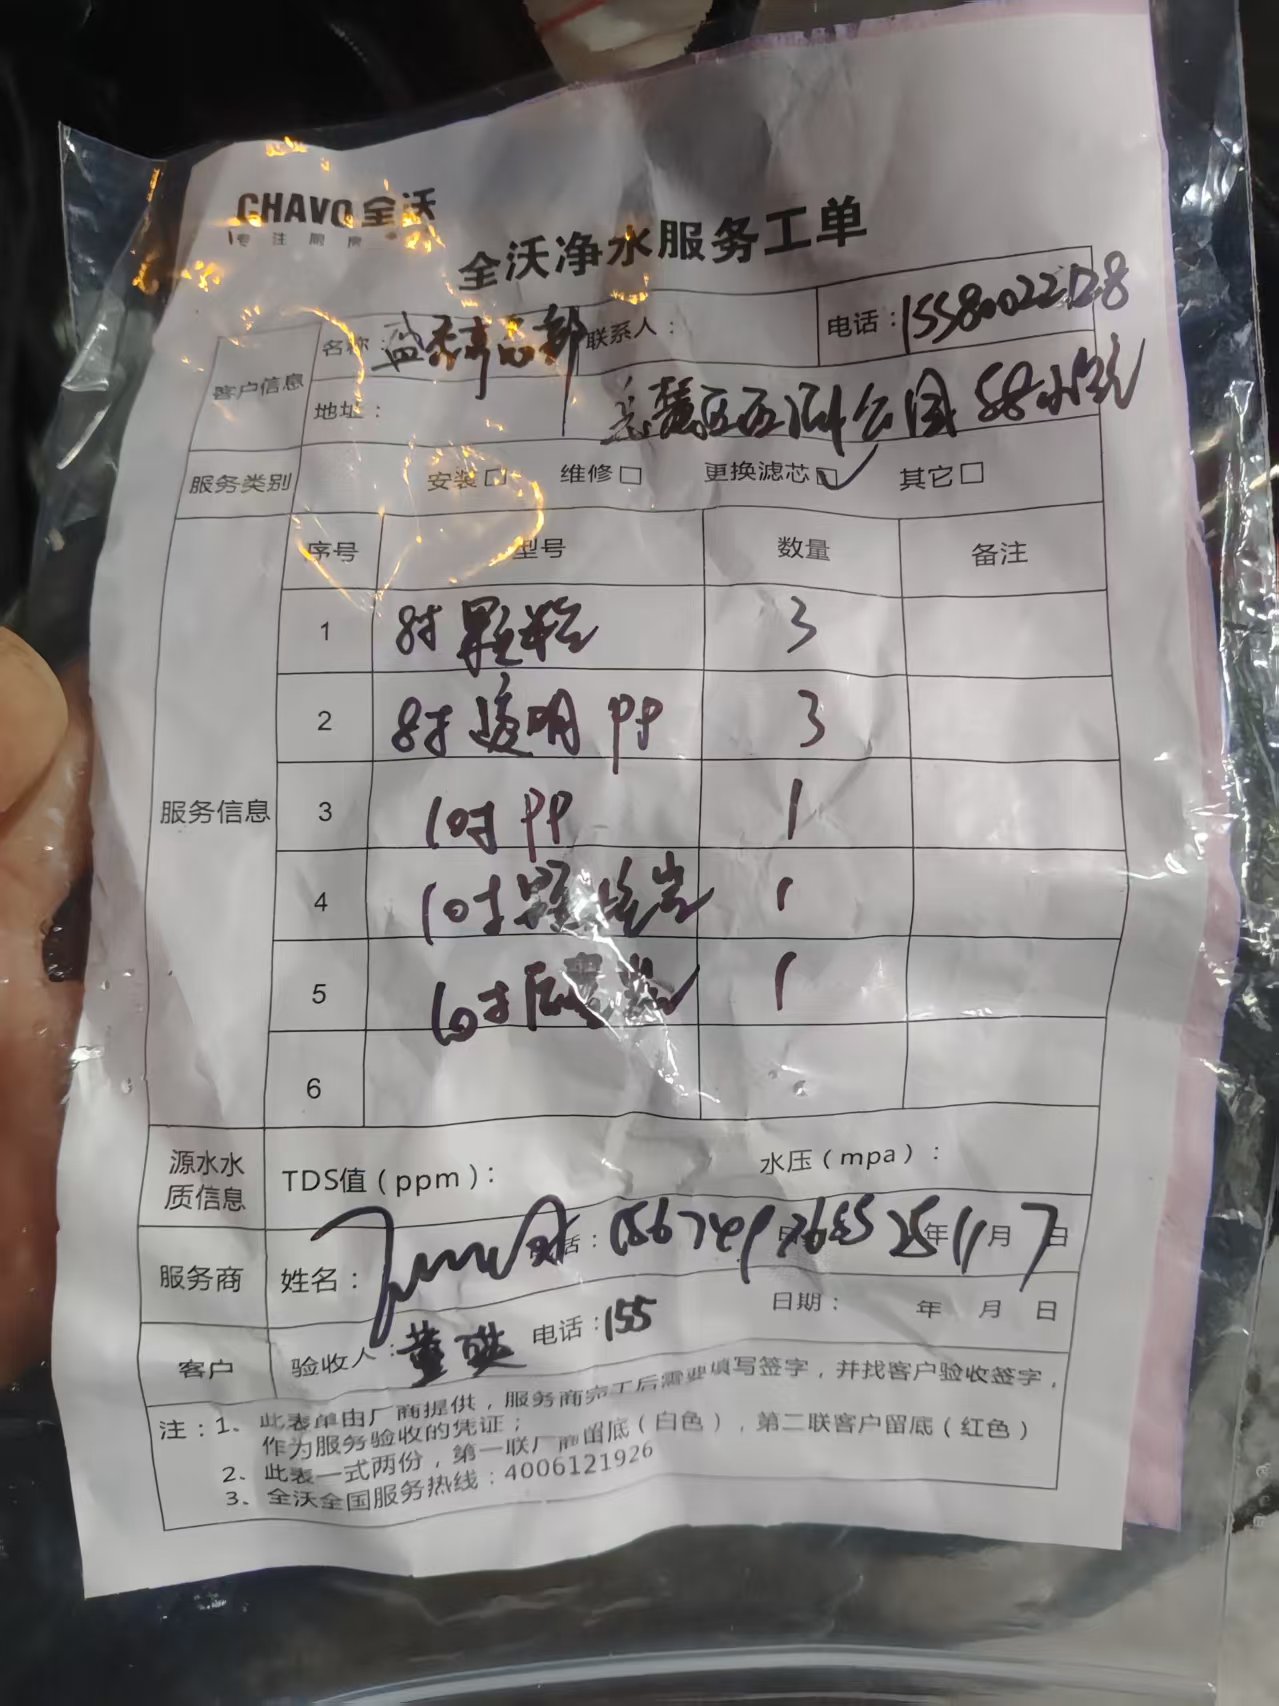 CHAVO 全沃
专注厨房
全沃净水服务工单
客户信息
名称： 联系人： 电话：15580022128
地址： 岳麓区西湖公园58小院
服务类别 安装□ 维修□ 更换滤芯☑ 其它□
服务信息
序号 型号 数量 备注
1 8寸颗粒 3
2 8寸透明PP 3
3 10寸PP 1
4 10寸颗粒炭 1
5 10寸后置炭 1
6
源水水质信息 TDS值（ppm）： 水压（mpa）：
服务商 姓名： 电话： 25年11月7日
客户 验收人： 电话：155 日期： 年 月 日
注：1、此表单由厂商提供，服务商完工后需要填写签字，并找客户验收签字，
作为服务验收的凭证；
2、此表一式两份，第一联厂商留底（白色），第二联客户留底（红色）
3、全沃全国服务热线：4006121926